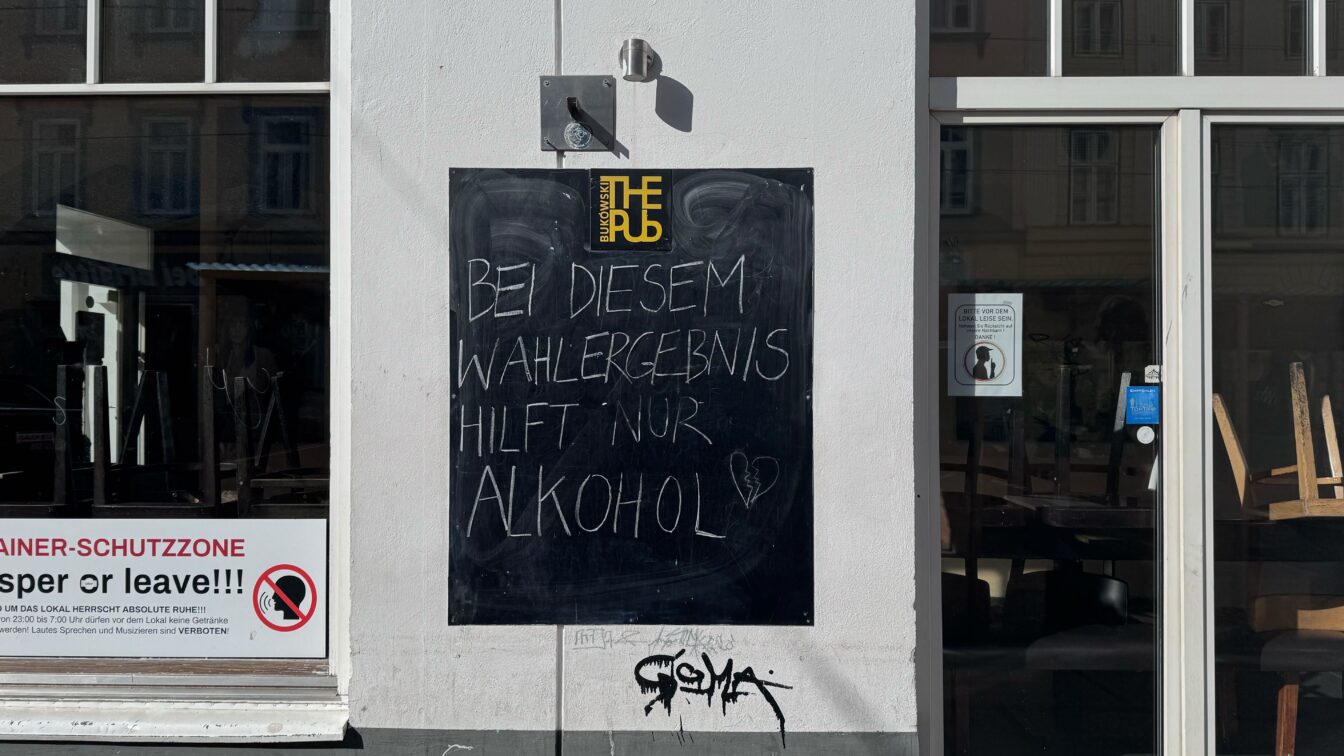 BUKOWSKI
THE
PUB
BEI DIESEM
WAHLERGEBNIS
HILFT NUR
ALKOHOL
AINER-SCHUTZZONE
sper or leave!!!
UM DAS LOKAL HERRSCHT ABSOLUTE RUHE!!!
von 23:00 bis 7:00 Uhr dürfen vor dem Lokal keine Getränke
werden! Lautes Sprechen und Musizieren sind VERBOTEN!
BITTE VOR DEM
LOKAL LEISE SEIN.
Nehmen Sie Rücksicht auf
unsere Nachbarn!
DANKE!
GOMA